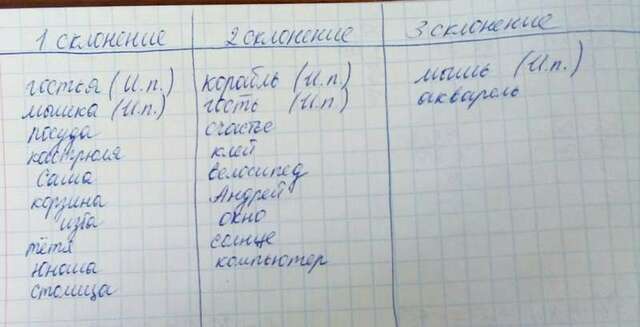 1 склонение 2 склонение 3 склонение
гостья (И.п.) корабль (И.п.) мышь (И.п.)
мышка (И.п.) гость (И.п.) акварель
посуда счастье
кастрюля клей
Саша велосипед
корзина Андрей
изба окно
тётя солнце
юноша компьютер
столица